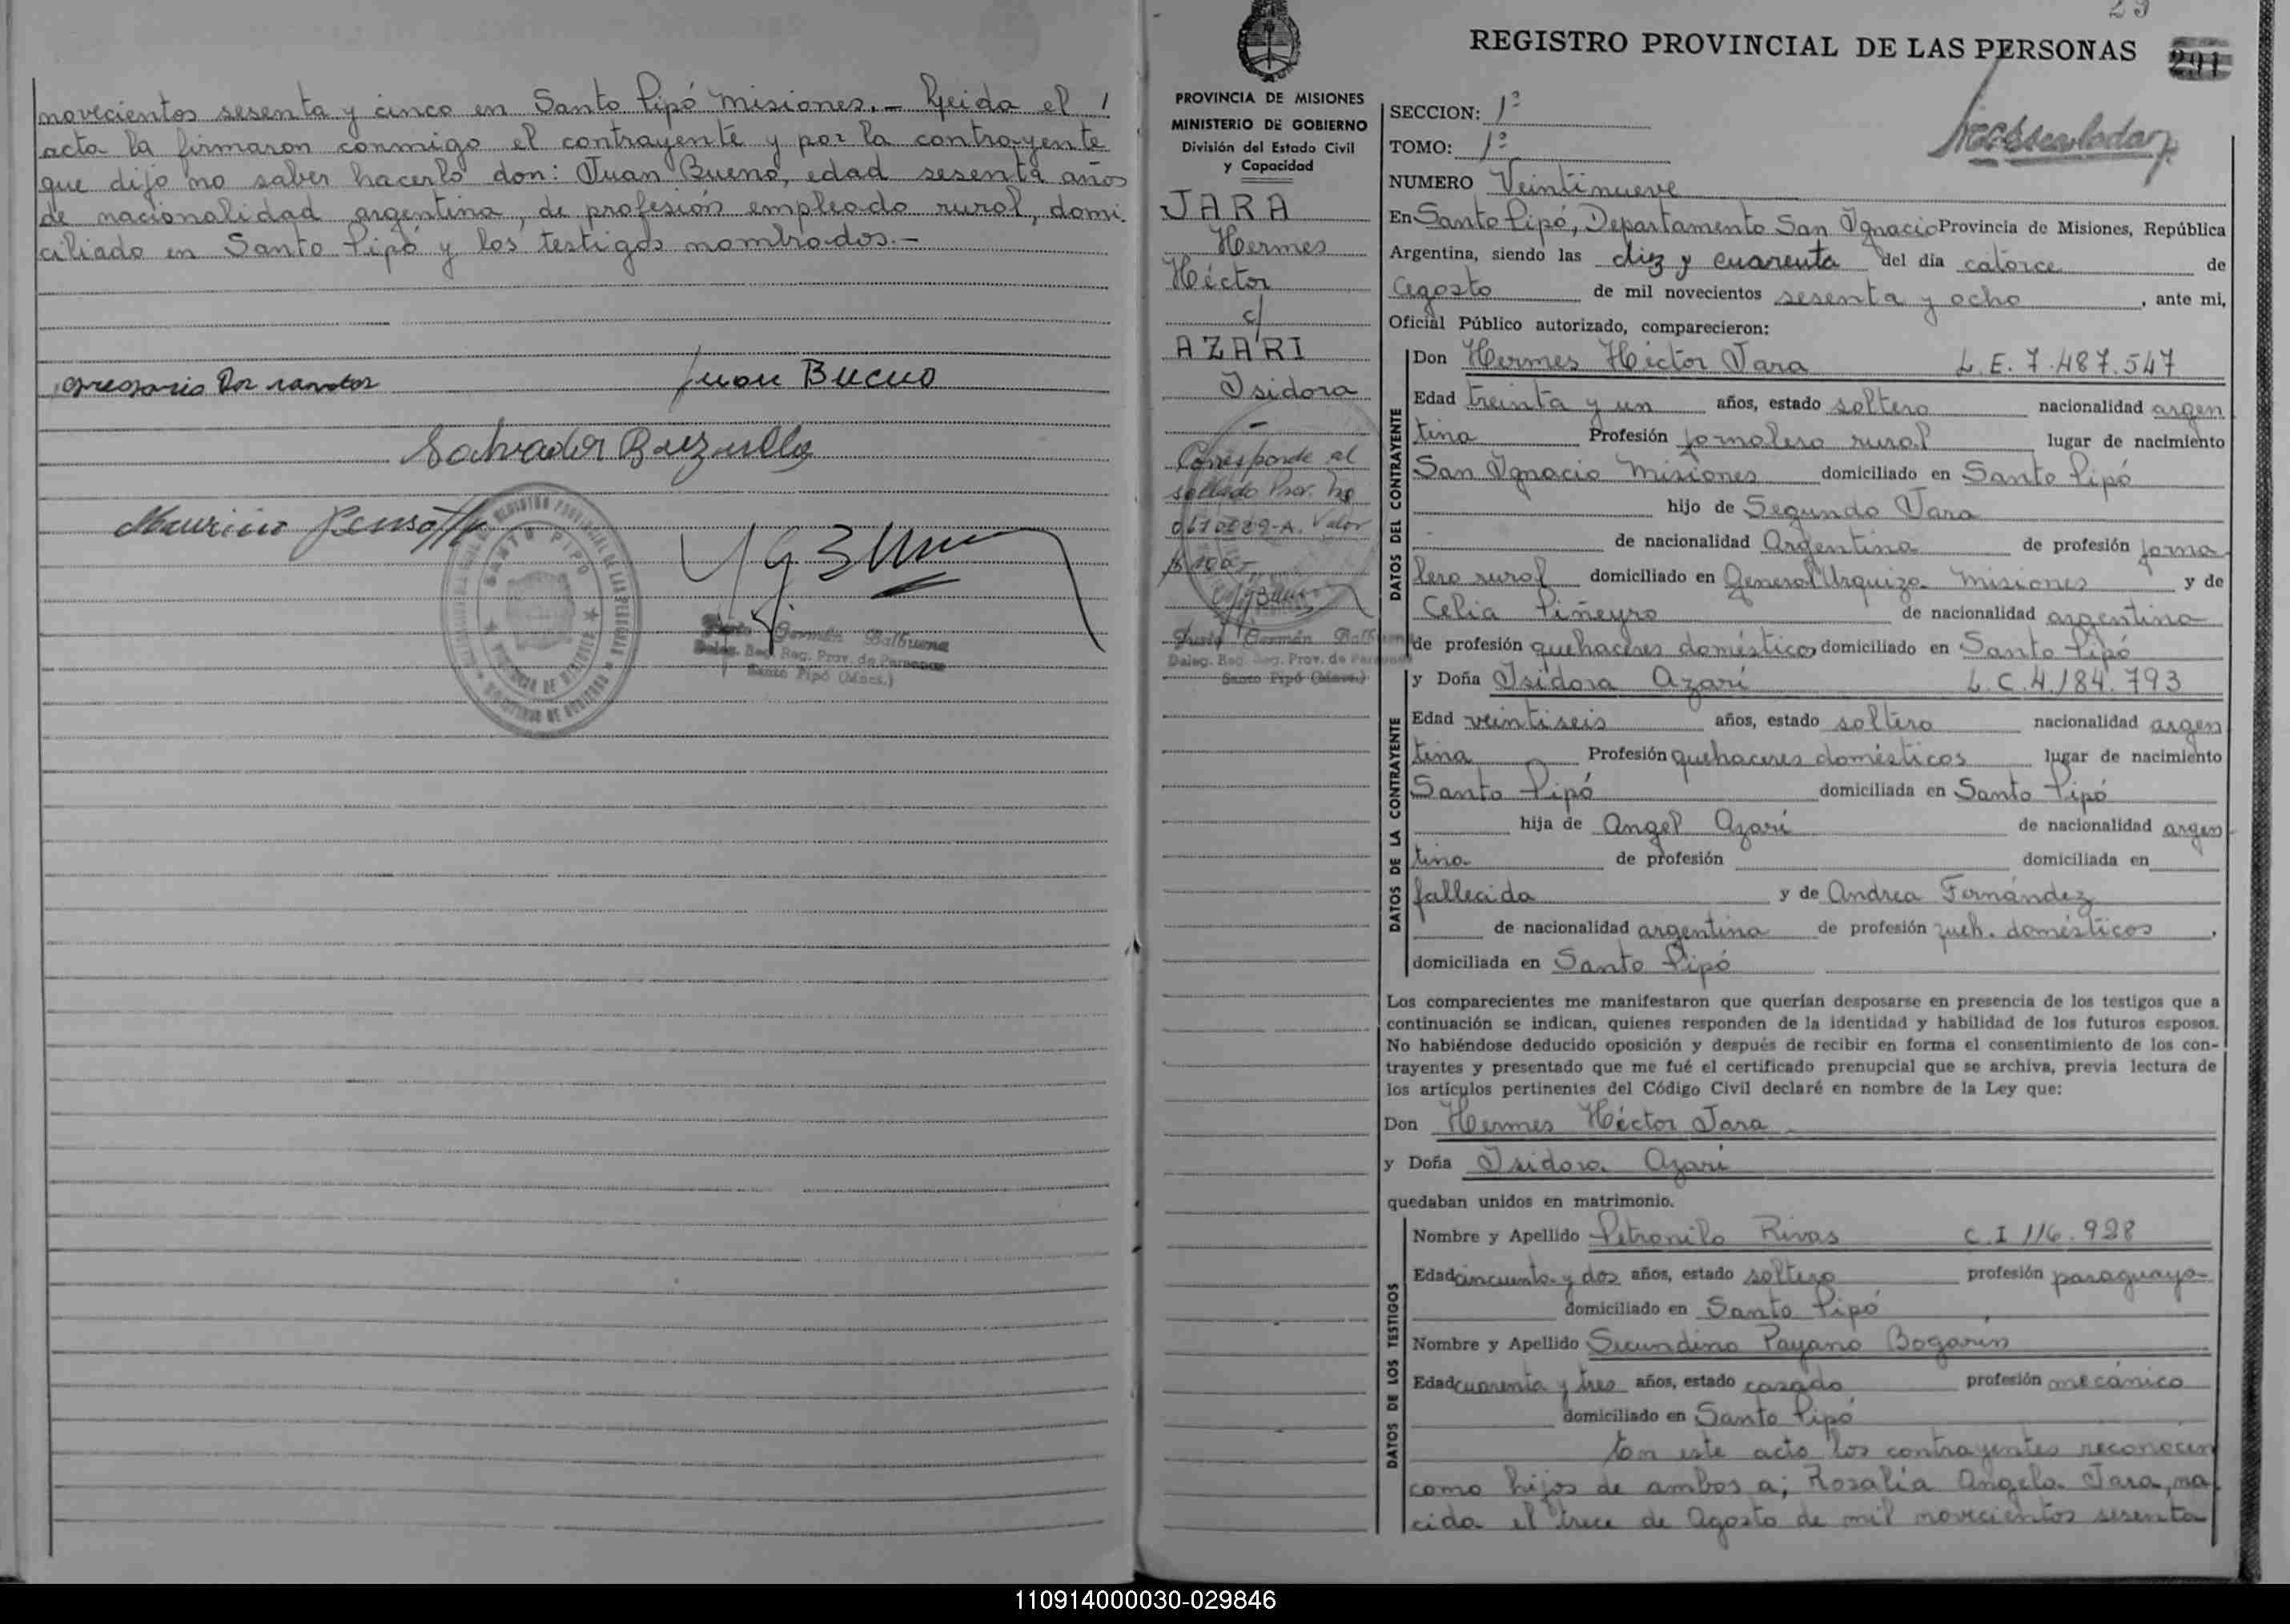 novecientos sesenta y cinco en Santo Pipó Misiones.- Leida el
acta la firmaron conmigo el contrayente y por la contrayente
que dijo no saber hacerlo don: Juan Bueno, edad sesenta años
de nacionalidad argentina, de profesión empleado rural, domi
ciliado en Santo Pipó y los testigos nombrados.-
Juan Bueno
Salvador
Mauricio
SANTO PIPO
Germán Balbuena
Deleg. Reg. Prov. de Personas
Santo Pipó (Mnes.)
29
REGISTRO PROVINCIAL DE LAS PERSONAS
291
PROVINCIA DE MISIONES
MINISTERIO DE GOBIERNO
División del Estado Civil
y Capacidad
JARA
Hermes
Héctor
c/
AZARI
Isidora
Corresponde al
sellado Prov. No
Valor
Germán Balbuena
Deleg. Reg. Prov. de Personas
Santo Pipó (Mnes.)
SECCION: 1ª
TOMO: 1º
NUMERO Veintinueve
En Santo Pipó, Departamento San Ignacio Provincia de Misiones, República
Argentina, siendo las diez y cuarenta del día catorce de
Agosto de mil novecientos sesenta y ocho, ante mi,
Oficial Público autorizado, comparecieron:
DATOS DEL CONTRAYENTE
Don Hermes Héctor Jara L.E. 7.487.547
Edad treinta y un años, estado soltero nacionalidad argen
tina Profesión jornalero rural lugar de nacimiento
San Ignacio Misiones domiciliado en Santo Pipó
hijo de Segundo Jara
de nacionalidad Argentina de profesión jorna
lero rural domiciliado en General Urquiza Misiones y de
Celia Piñeyro de nacionalidad argentina
de profesión quehaceres domésticos domiciliado en Santo Pipó
DATOS DE LA CONTRAYENTE
y Doña Isidora Azarí L.C. 4.184.793
Edad veintiseis años, estado soltera nacionalidad argen
tina Profesión quehaceres domésticos lugar de nacimiento
Santo Pipó domiciliada en Santo Pipó
hija de Angel Azarí de nacionalidad argen
tina de profesión domiciliada en
fallecido y de Andrea Fernández
de nacionalidad argentina de profesión queh. domésticos,
domiciliada en Santo Pipó
Los comparecientes me manifestaron que querían desposarse en presencia de los testigos que a
continuación se indican, quienes responden de la identidad y habilidad de los futuros esposos.
No habiéndose deducido oposición y después de recibir en forma el consentimiento de los con-
trayentes y presentado que me fué el certificado prenupcial que se archiva, previa lectura de
los artículos pertinentes del Código Civil declaré en nombre de la Ley que:
Don Hermes Héctor Jara
y Doña Isidora Azarí
quedaban unidos en matrimonio.
DATOS DE LOS TESTIGOS
Nombre y Apellido Petronilo Rivas C.I 116.928
Edad cincuenta y dos años, estado soltero profesión paraguayo
domiciliado en Santo Pipó
Nombre y Apellido Secundino Payano Bogarin
Edad cuarenta y tres años, estado casado profesión mecánico
domiciliado en Santo Pipó
En este acto los contrayentes reconocen
como hijos de ambos a; Rosalía Angela Jara, na
cida el trece de Agosto de mil novecientos sesenta
110914000030-029846